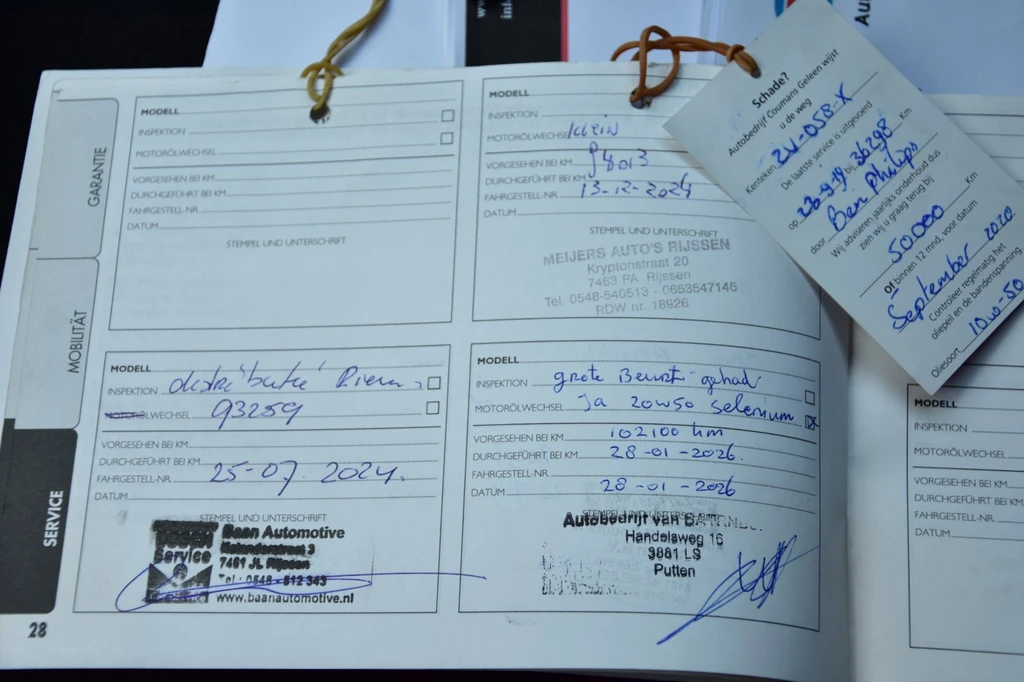 GARANTIE
MOBILITÄT
SERVICE
MODELL
INSPEKTION
MOTORÖLWECHSEL
VORGESEHEN BEI KM
DURCHGEFÜHRT BEI KM
FAHRGESTELL-NR.
DATUM
STEMPEL UND UNTERSCHRIFT
MODELL
INSPEKTION
MOTORÖLWECHSEL Klein
VORGESEHEN BEI KM
DURCHGEFÜHRT BEI KM
FAHRGESTELL-NR. 13-12-2024
DATUM
STEMPEL UND UNTERSCHRIFT
MEIJERS AUTO'S RIJSSEN
Kryptonstraat 20
7463 PA Rijssen
Tel. 0548-540513 - 0653547145
RDW nr. 18926
Schade?
Autobedrijf Coumans Geleen wijst
u de weg
Kenteken 24-058-X
De laatste service is uitgevoerd
op 26-9-19 bij 36298 Km
door Ben Philips
Wij adviseren jaarlijks onderhoud dus
zien wij u graag terug bij
50000 Km
Of binnen 12 mnd, voor datum
September 2020
Controleer regelmatig het
oliepeil en de bandenspanning
Oliesoort 10w-50
MODELL
INSPEKTION distributie Riem
ÖLWECHSEL 93259
VORGESEHEN BEI KM
DURCHGEFÜHRT BEI KM
FAHRGESTELL-NR. 25-07-2024.
DATUM
STEMPEL UND UNTERSCHRIFT
Service
Baan Automotive
7461 JL Rijssen
Tel.: 0548 - 512 343
www.baanautomotive.nl
MODELL
INSPEKTION grote Beurt gehad
MOTORÖLWECHSEL Ja 20W50 Selenium
VORGESEHEN BEI KM 102100 km
DURCHGEFÜHRT BEI KM 28-01-2026.
FAHRGESTELL-NR.
DATUM 28-01-2026
STEMPEL UND UNTERSCHRIFT
Autobedrijf van
Handelsweg 16
3881 LS
Putten
MODELL
INSPEKTION
MOTORÖLWECHSEL
VORGESEHEN BEI KM
DURCHGEFÜHRT BEI KM
FAHRGESTELL-NR.
DATUM
28